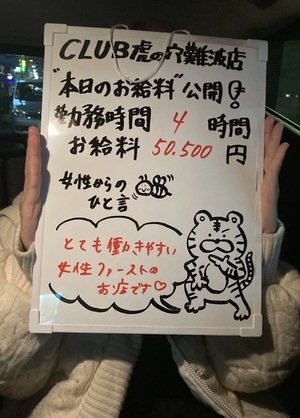 CLUB虎の穴難波店
"本日のお給料"公開!
勤務時間 4 時間
お給料 50.500円
女性からの
ひと言
とても働きやすい
女性ファーストの
お店です♡